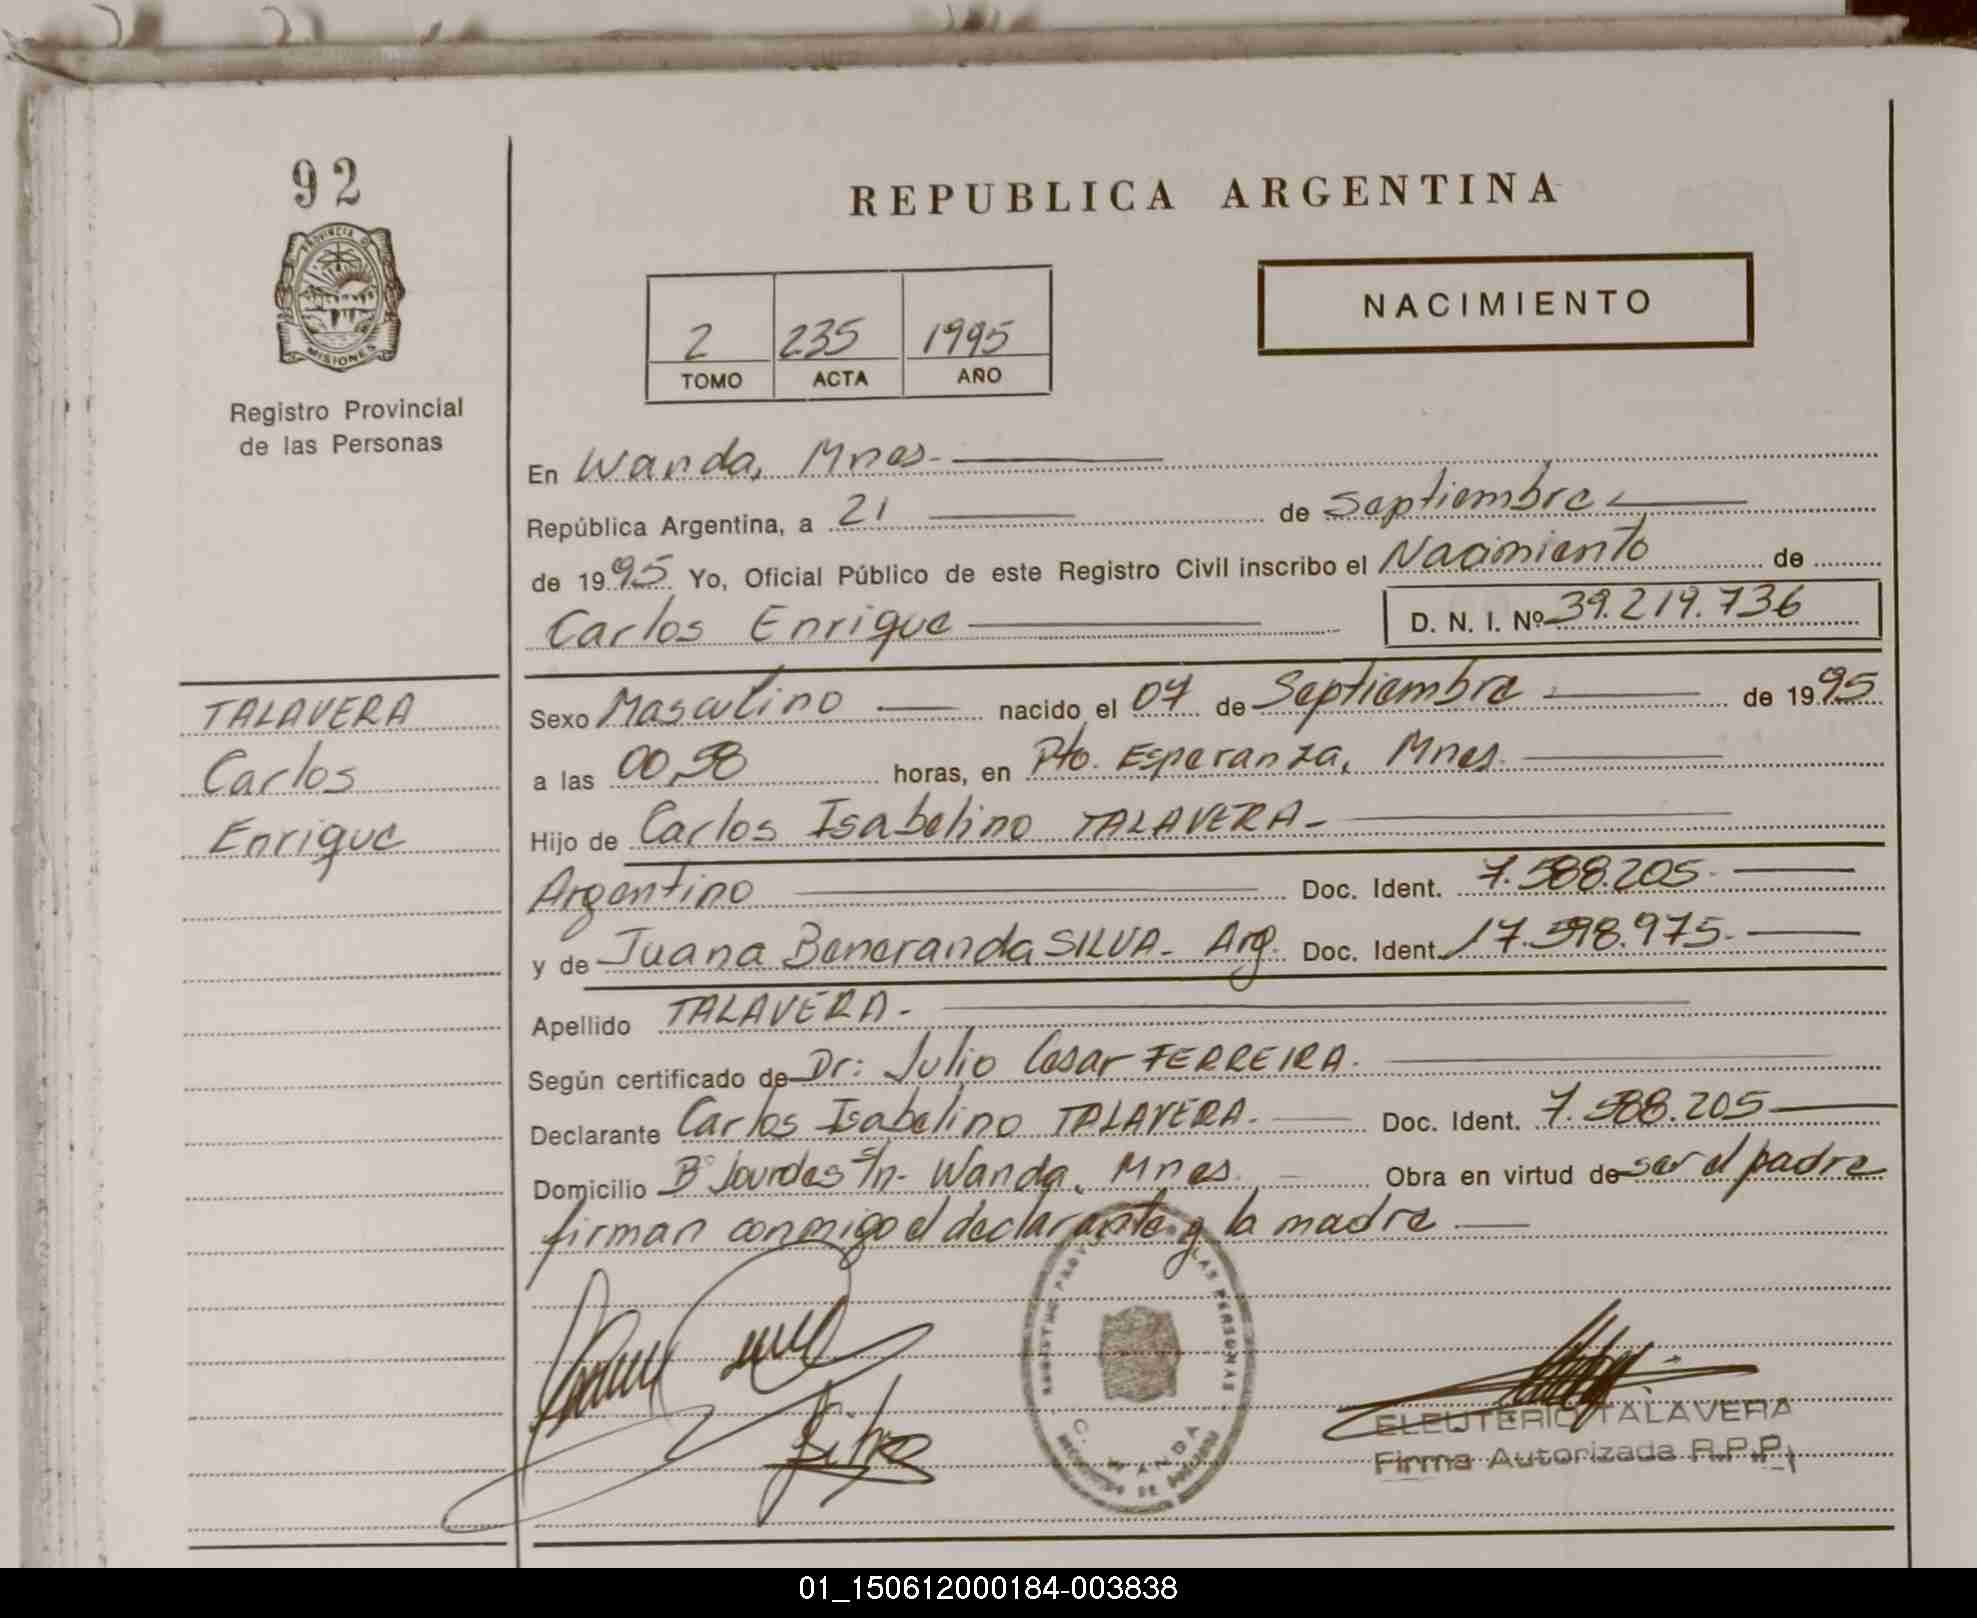 92
PROVINCIA DE
MISIONES
Registro Provincial
de las Personas
REPUBLICA ARGENTINA
NACIMIENTO
2 235 1995
TOMO ACTA AÑO
En Wanda, Mnes.
República Argentina, a 21 de Septiembre
de 1995 Yo, Oficial Público de este Registro Civil inscribo el Nacimiento de
Carlos Enrique D. N. I. Nº 39.219.736
TALAVERA
Carlos
Enrique
Sexo Masculino nacido el 07 de Septiembre de 1995
a las 00,58 horas, en Pto. Esperanza, Mnes.
Hijo de Carlos Isabelino TALAVERA-
Argentino Doc. Ident. 7.588.205.
y de Juana Beneranda SILVA- Arg. Doc. Ident. 17.598.975.
Apellido TALAVERA-
Según certificado de Dr: Julio Cesar FERREIRA.
Declarante Carlos Isabelino TALAVERA. Doc. Ident. 7.588.205
Domicilio Bº Lourdes s/n- Wanda, Mnes. Obra en virtud de ser el padre
firman conmigo el declarante y la madre
REGISTRO PROV LAS PERSONAS
WANDA
ELEUTERIO TALAVERA
Firma Autorizada R.P.P.
01_150612000184-003838